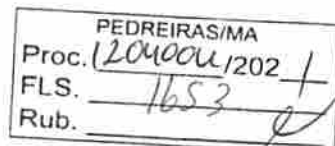 PEDREIRAS/MA
Proc. 1204004/2021
FLS. 1653
Rub.